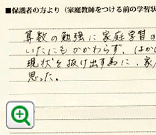 ■保護者の方より(家庭教師をつける前の学習状
算数の勉強に家庭学習の
いたにもかかわらず、はか
現状を抜け出す為に、家
思った。